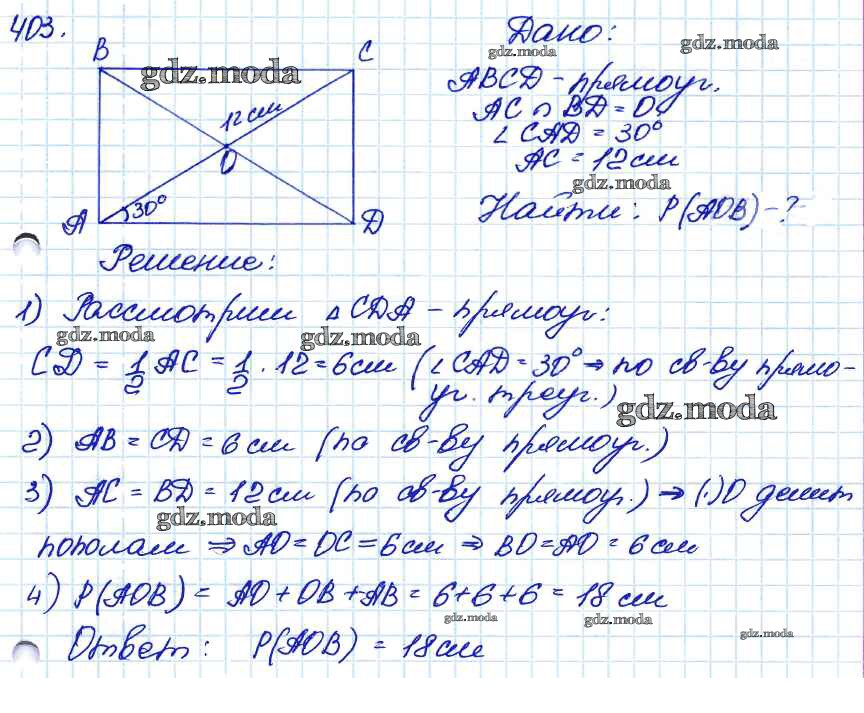 403.
B
C
12 см
O
30°
A
D
Дано:
ABCD - прямоуг.
AC ∩ BD = O
∠ CAD = 30°
AC = 12 см
Найти: P(AOB) - ?
Решение:
1) Рассмотрим △ CDA - прямоуг:
CD = 1/2 AC = 1/2 · 12 = 6 см (∠ CAD = 30° ⇒ по св-ву прямо-
уг. треуг.)
2) AB = CD = 6 см (по св-ву прямоуг.)
3) AC = BD = 12 см (по св-ву прямоуг.) ⇒ (·) O делит
пополам ⇒ AO = OC = 6 см ⇒ BO = AO = 6 см
4) P(AOB) = AO + OB + AB = 6 + 6 + 6 = 18 см
Ответ: P(AOB) = 18 см
gdz.moda
gdz.moda
gdz.moda
gdz.moda
gdz.moda
gdz.moda
gdz.moda
gdz.moda
gdz.moda
gdz.moda
gdz.moda